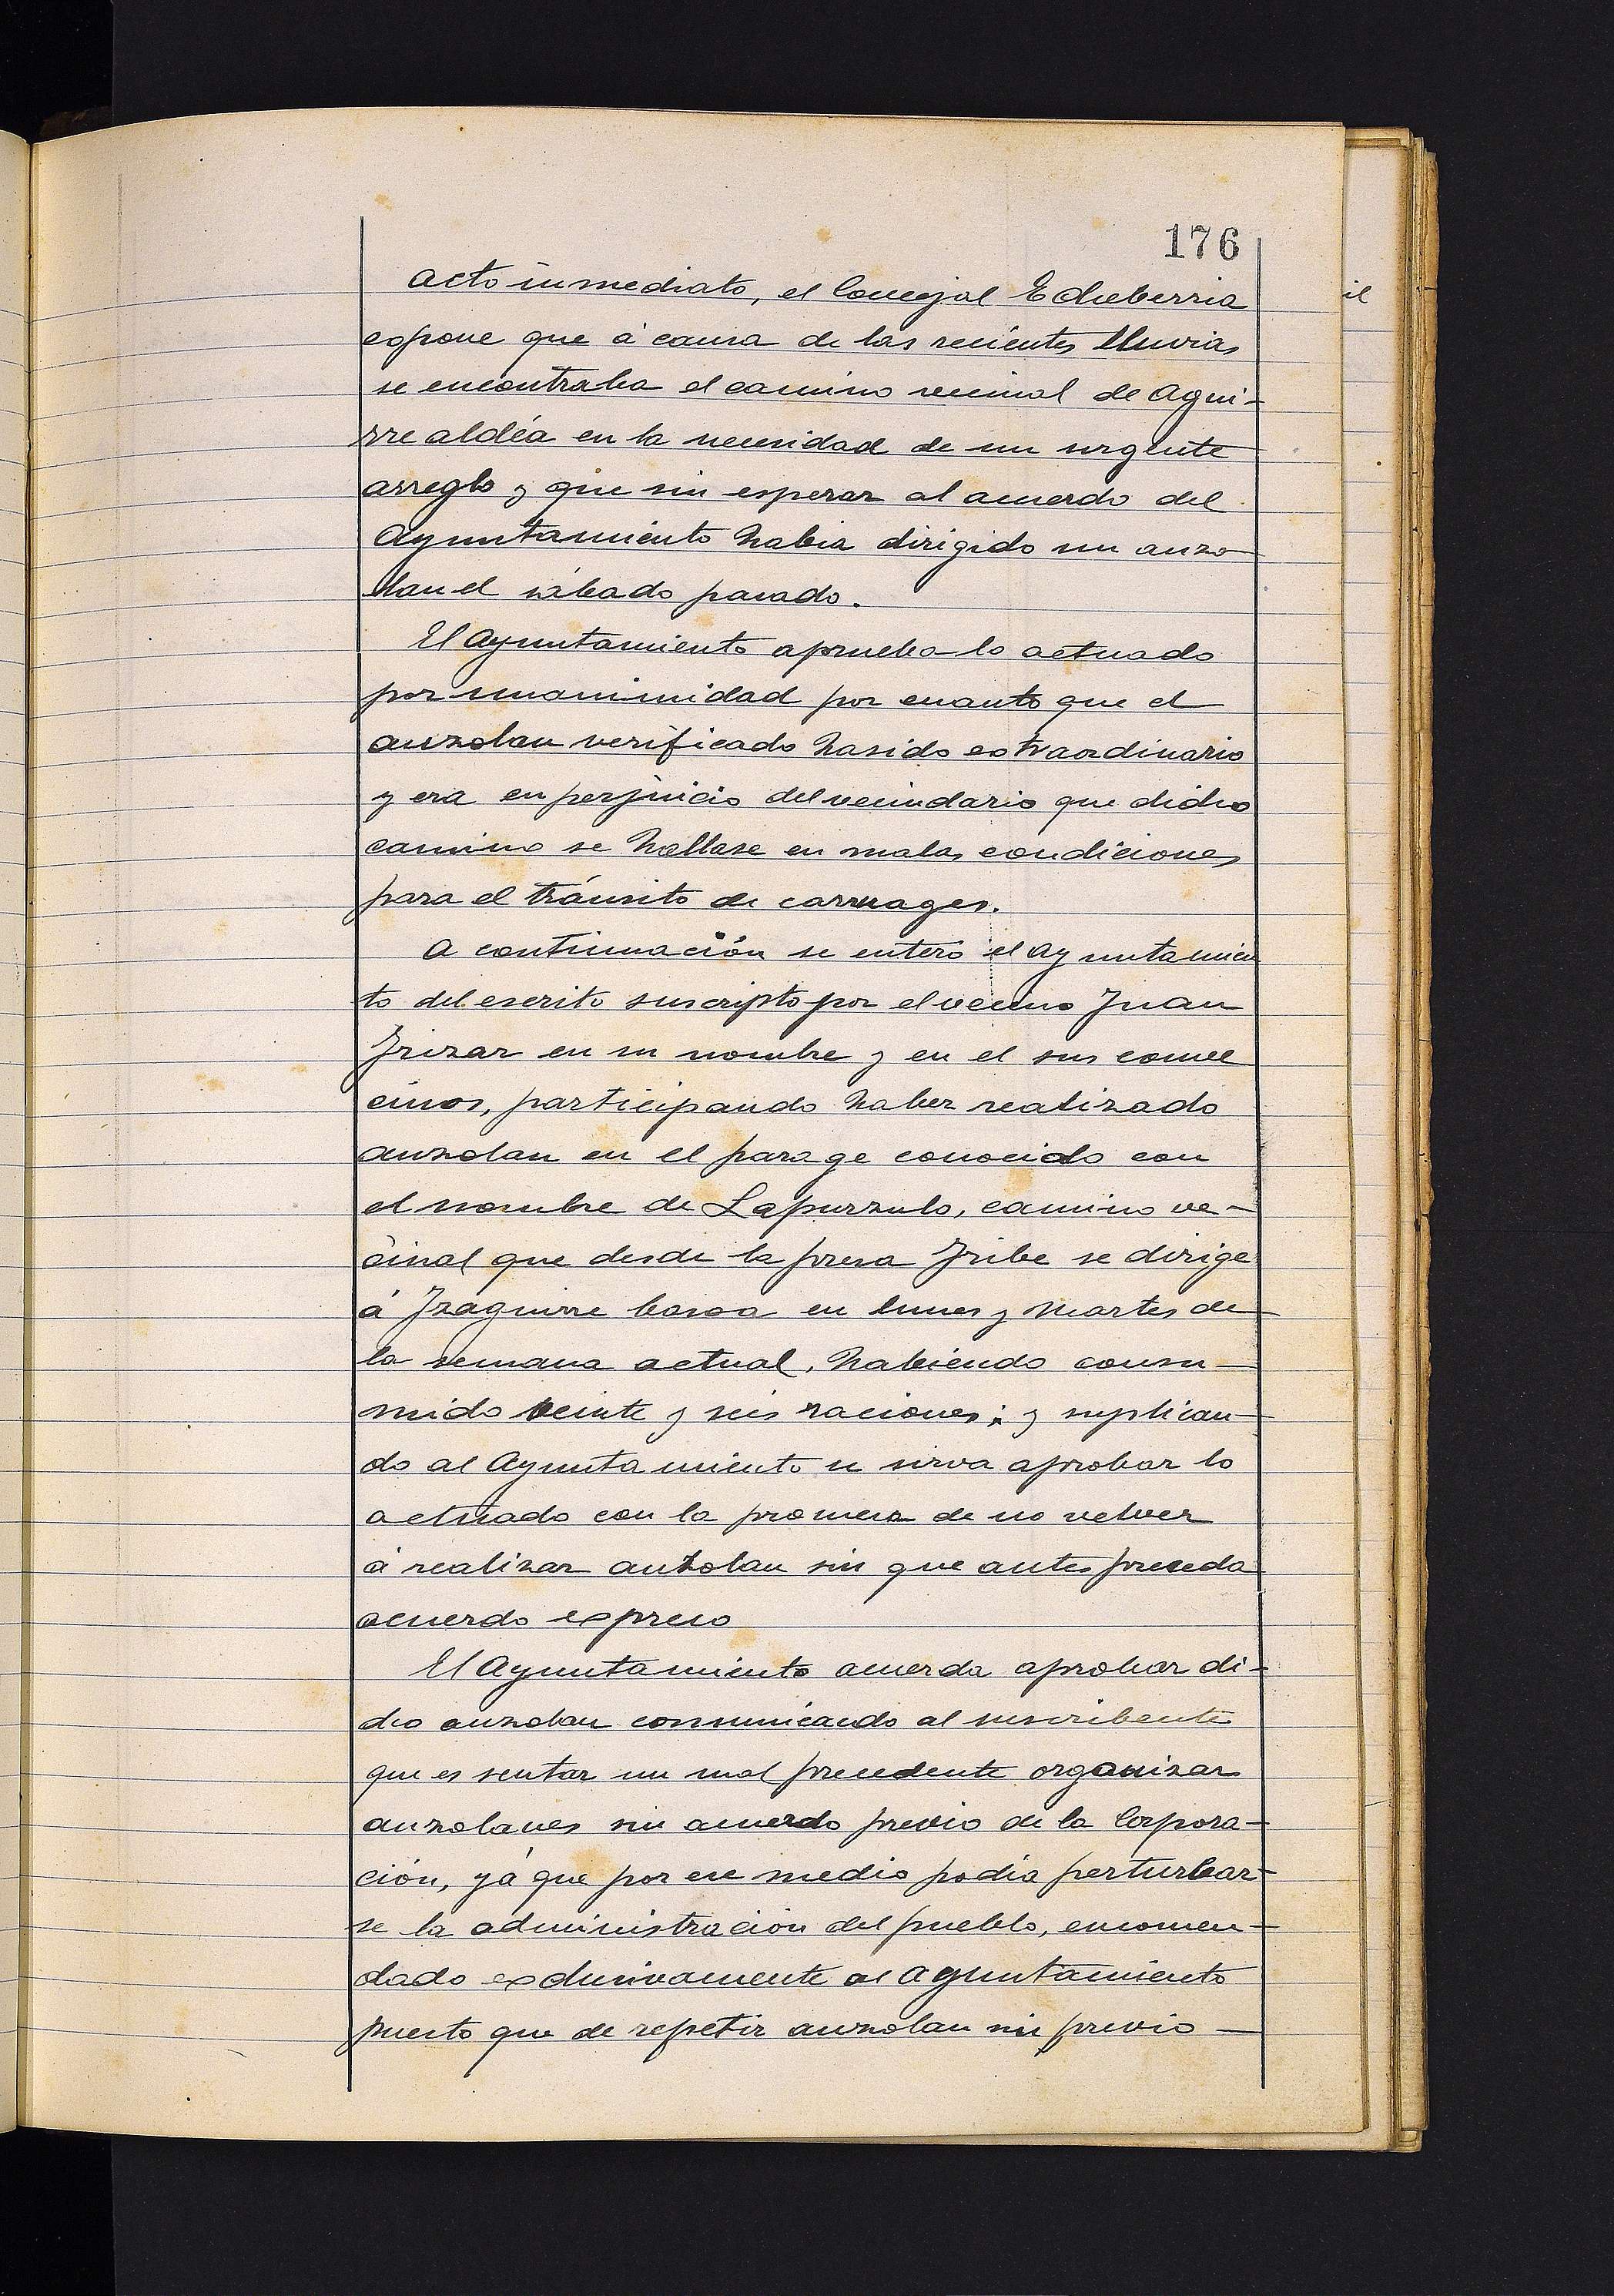 176
Acto inmediato, el Concejal Echeberria
expone que á causa de las recientes lluvias
se encontraba el camino vecinal de Agui-
rre aldéa en la necesidad de un urgente
arreglo y que sin esperar al acuerdo del
Ayuntamiento habia dirigido un auzo-
lan el sábado pasado.
El Ayuntamiento aprueba lo actuado
por unanimidad por cuanto que el
auzolan verificado ha sido extraordinario
y era en perjuicio del vecindario que dicho
camino se hallase en malas condiciones
para el tránsito de carruages.
A continuación se enteró el Ayuntamien
to del escrito suscripto por el vecino Juan
Irizar en su nombre y en el sus conve
cinos, participando haber realizado
auzolan en el parage conocido con
el nombre de Lapurzulo, camino ve-
cinal que desde la presa Iribe se dirige
á Izaguirre basoa en lunes y martes de
la semana actual, habiendo consu-
mido veinte y seis raciones; y suplican-
do al Ayuntamiento se sirva aprobar lo
actuado con la promesa de no volver
á realizar auzolan sin que antes preceda
acuerdo expreso
El Ayuntamiento acuerda aprobar di-
cho auzolan comunicando al suscribente
que es sentar un mal precedente organizar
auzolanes sin acuerdo previo de la Corpora-
ción, yá que por ese medio podia perturbar-
se la administración del pueblo, encomen-
dado exclusivamente al Ayuntamiento
puesto que de repetir auzolan sin previo
il